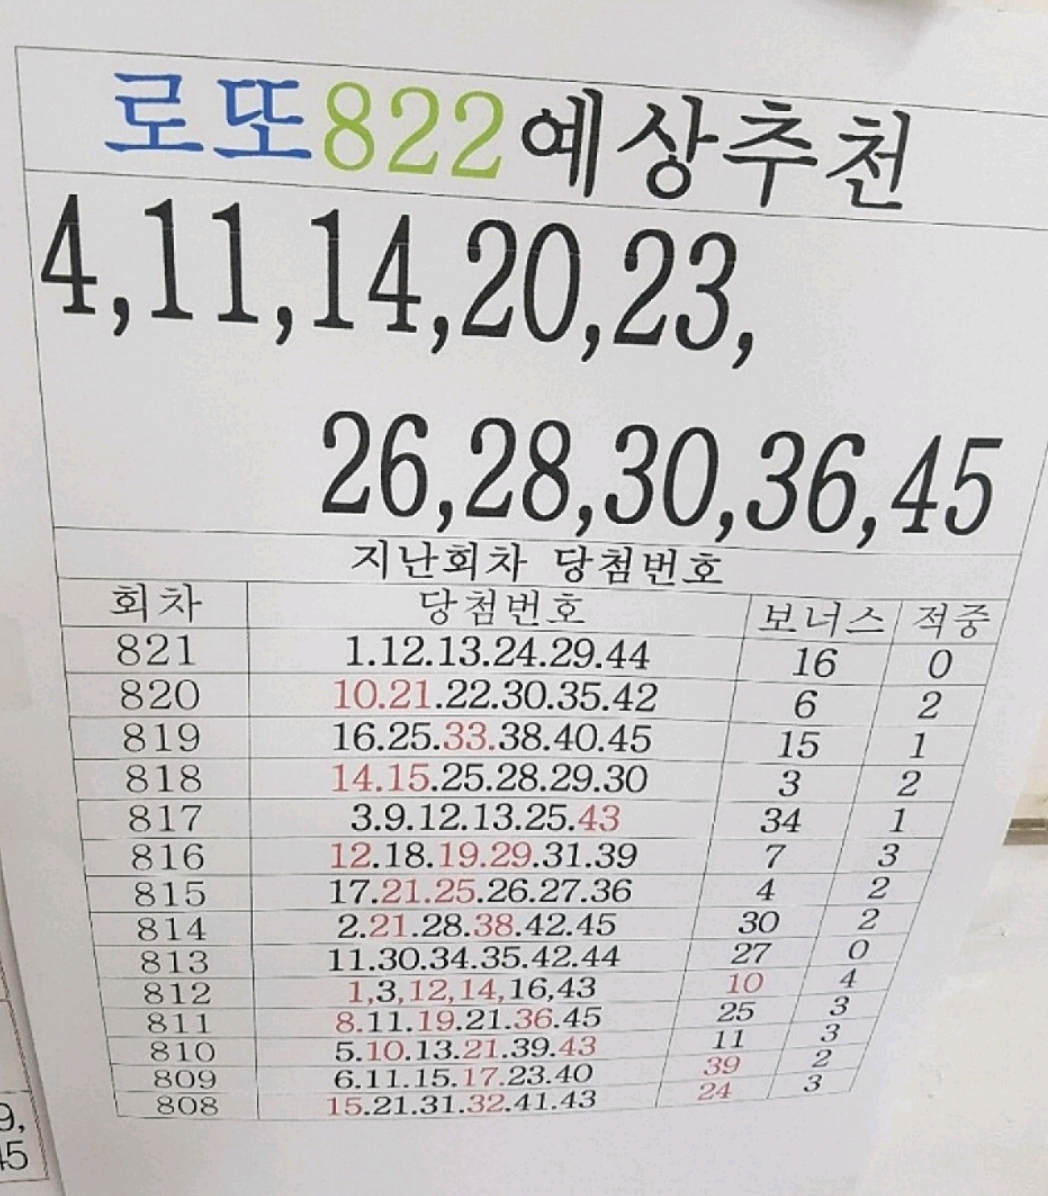 로또822예상추천
4,11,14,20,23,
26,28,30,36,45
지난회차 당첨번호
회차 당첨번호 보너스 적중
821 1.12.13.24.29.44 16 0
820 10.21.22.30.35.42 6 2
819 16.25.33.38.40.45 15 1
818 14.15.25.28.29.30 3 2
817 3.9.12.13.25.43 34 1
816 12.18.19.29.31.39 7 3
815 17.21.25.26.27.36 4 2
814 2.21.28.38.42.45 30 2
813 11.30.34.35.42.44 27 0
812 1,3,12,14,16,43 10 4
811 8.11.19.21.36.45 25 3
810 5.10.13.21.39.43 11 3
809 6.11.15.17.23.40 39 2
808 15.21.31.32.41.43 24 3
9,
45